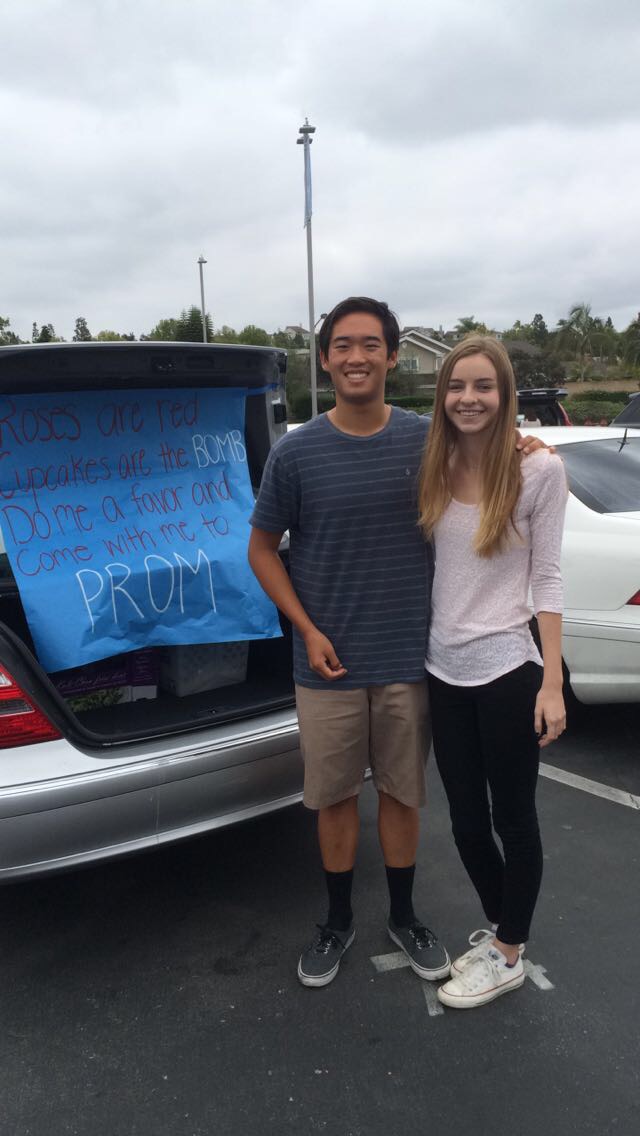 Roses are red
Cupcakes are the BOMB
Do me a favor and
Come with me to
PROM